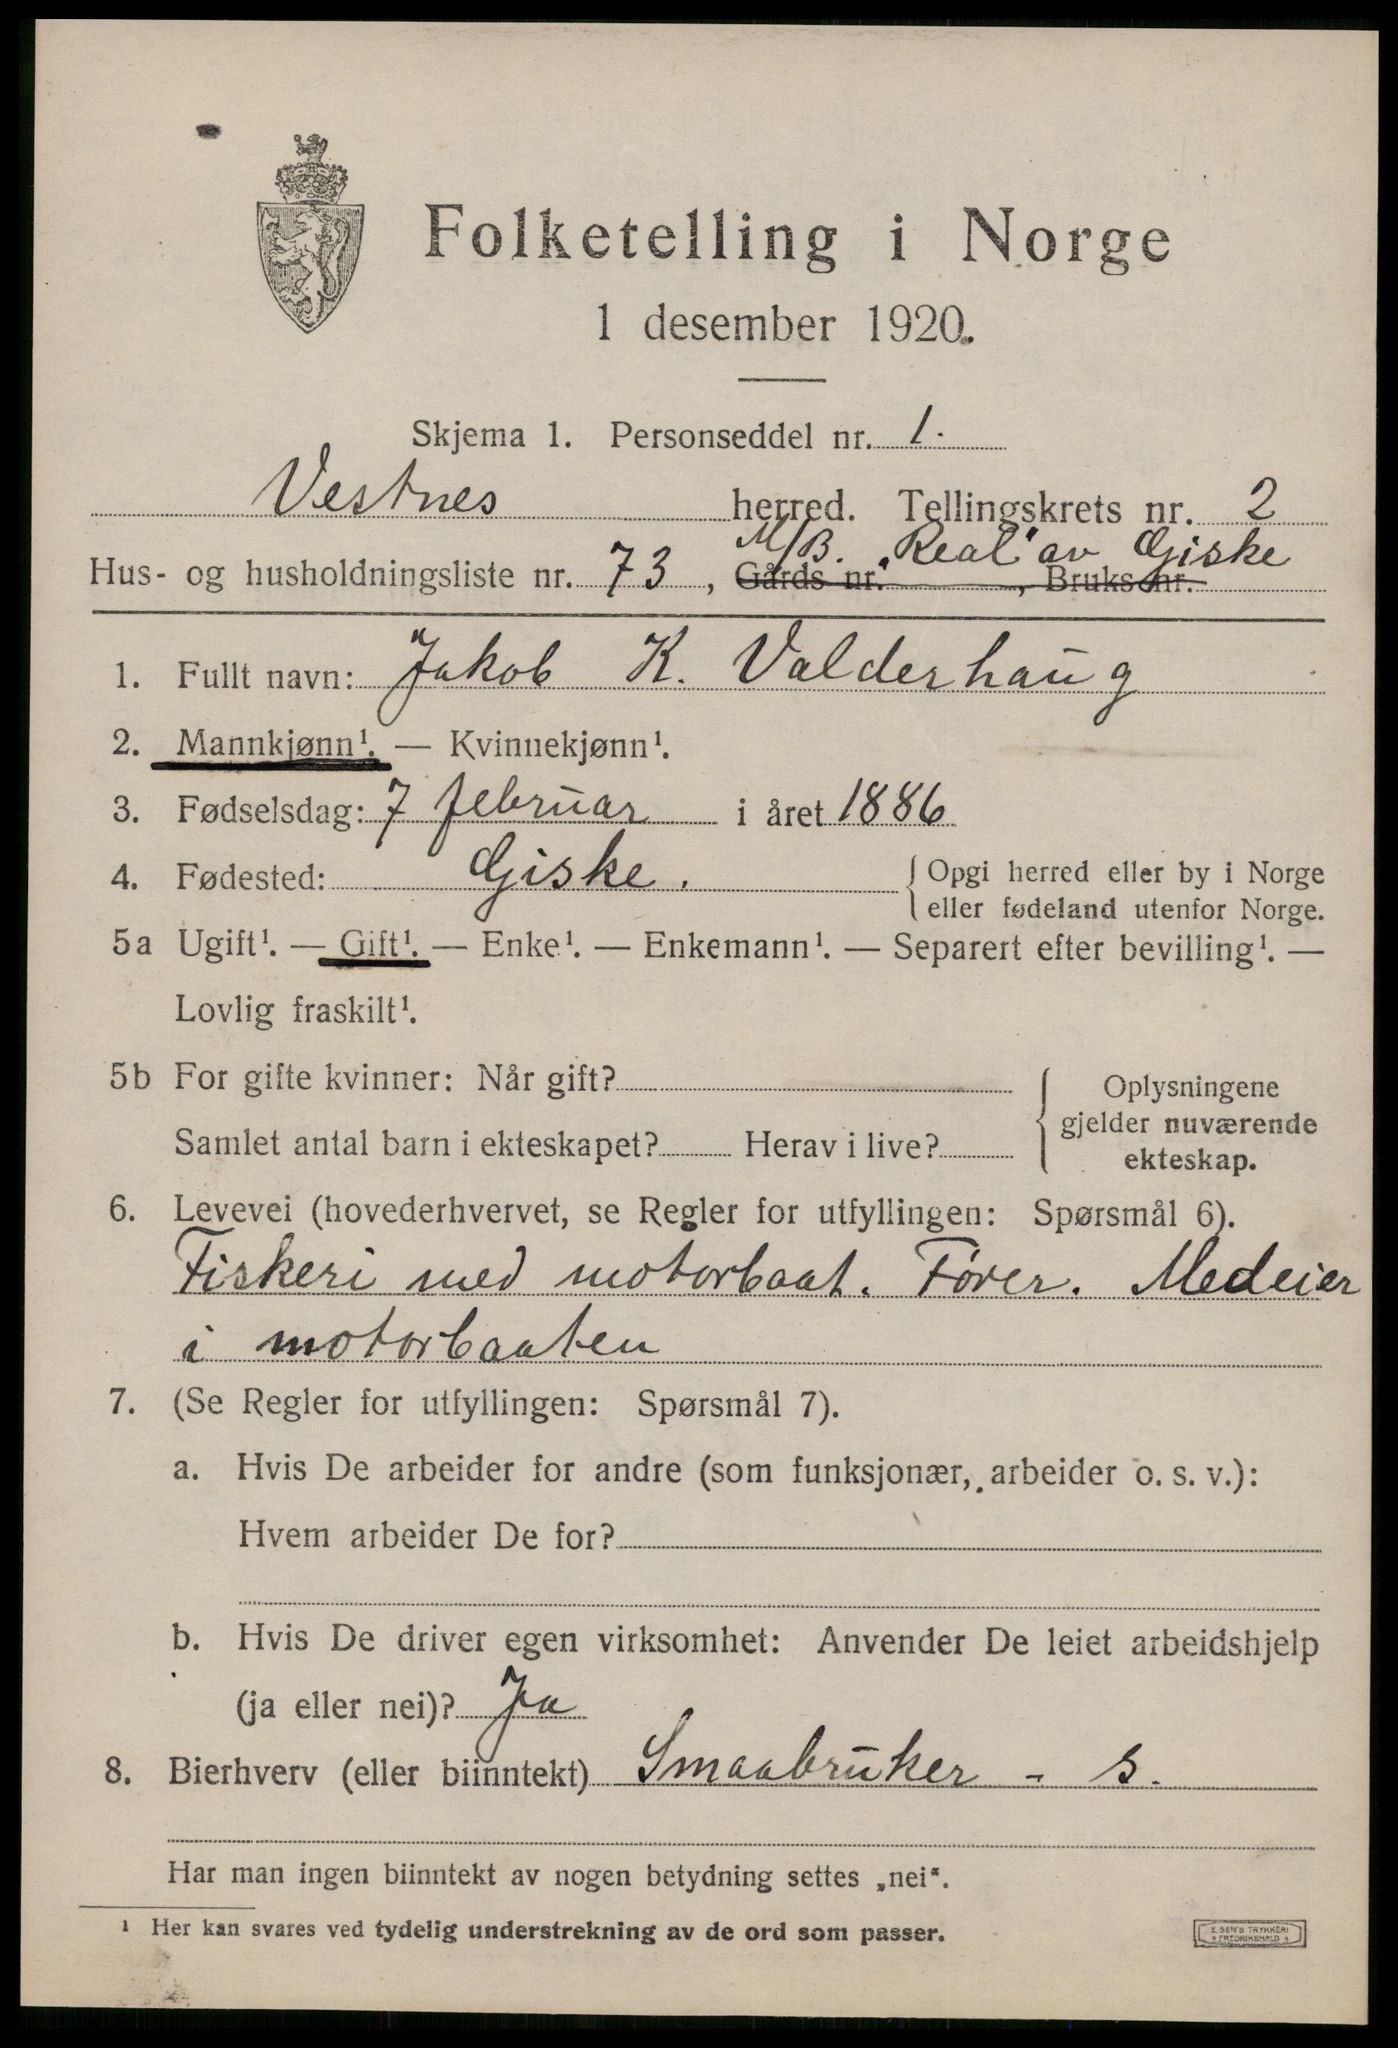 Folketelling i Norge
1 desember 1920.
Skjema 1. Personseddel nr. 1.
Vestnes herred. Tellingskrets nr. 2
M/B. "Real" av Giske
Hus- og husholdningsliste nr. 73, Gårds nr. , Bruks nr.
1. Fullt navn: Jakob K. Valderhaug
2. Mannkjønn¹. — Kvinnekjønn¹.
3. Fødselsdag: 7 februar i året 1886
4. Fødested: Giske. { Opgi herred eller by i Norge
eller fødeland utenfor Norge.
5a Ugift¹. — Gift¹. — Enke¹. — Enkemann¹. — Separert efter bevilling¹. —
Lovlig fraskilt¹.
5b For gifte kvinner: Når gift?
Samlet antal barn i ekteskapet? Herav i live?
Oplysningene
gjelder nuværende
ekteskap.
6. Levevei (hovederhvervet, se Regler for utfyllingen: Spørsmål 6).
Fiskeri med motorbaat. Fører. Medeier
i motorbaaten
7. (Se Regler for utfyllingen: Spørsmål 7).
a. Hvis De arbeider for andre (som funksjonær, arbeider o. s. v.):
Hvem arbeider De for?
b. Hvis De driver egen virksomhet: Anvender De leiet arbeidshjelp
(ja eller nei)? Ja
8. Bierhverv (eller biinntekt) Smaabruker - s.
Har man ingen biinntekt av nogen betydning settes „nei“.
¹ Her kan svares ved tydelig understrekning av de ord som passer.
E SEM'S TRYKKERI
FREDRIKSHALD